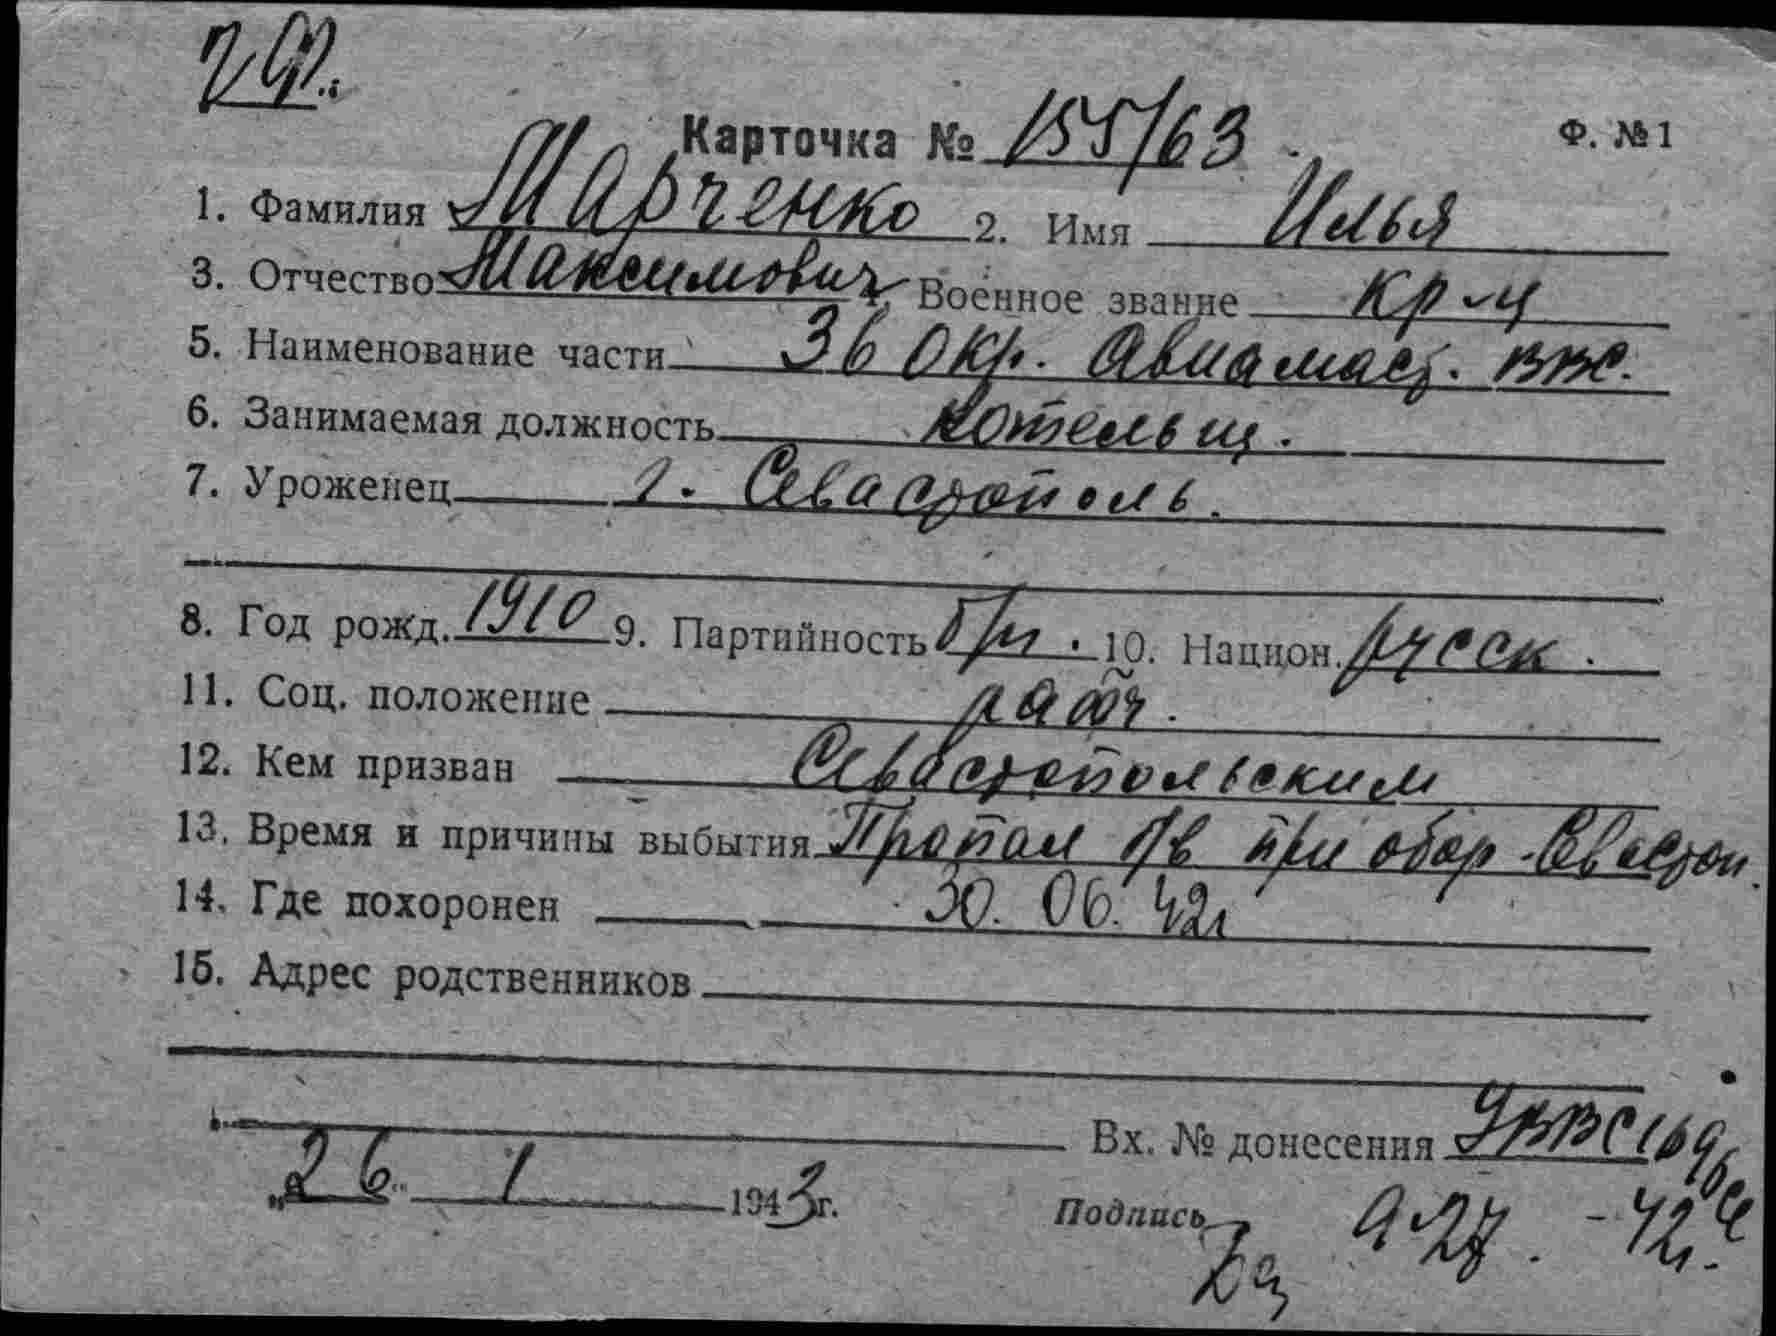 ЧФ.
Карточка № 155/63 Ф. №1
1. Фамилия Марченко 2. Имя Илья
3. Отчество Максимович 4. Военное звание кр-ц
5. Наименование части 36 окр. Авиамаст. ВВС.
6. Занимаемая должность котельщ.
7. Уроженец г. Севастополь.
8. Год рожд. 1910 9. Партийность б/п. 10. Национ. русск.
11. Соц. положение рабоч.
12. Кем призван Севастопольским
13. Время и причины выбытия Пропал б/в при обор. Севастоп.
14. Где похоронен 30. 06. 42г
15. Адрес родственников
Вх. № донесения УВВС 1696сс
„26“ 1 1943г. Подпись